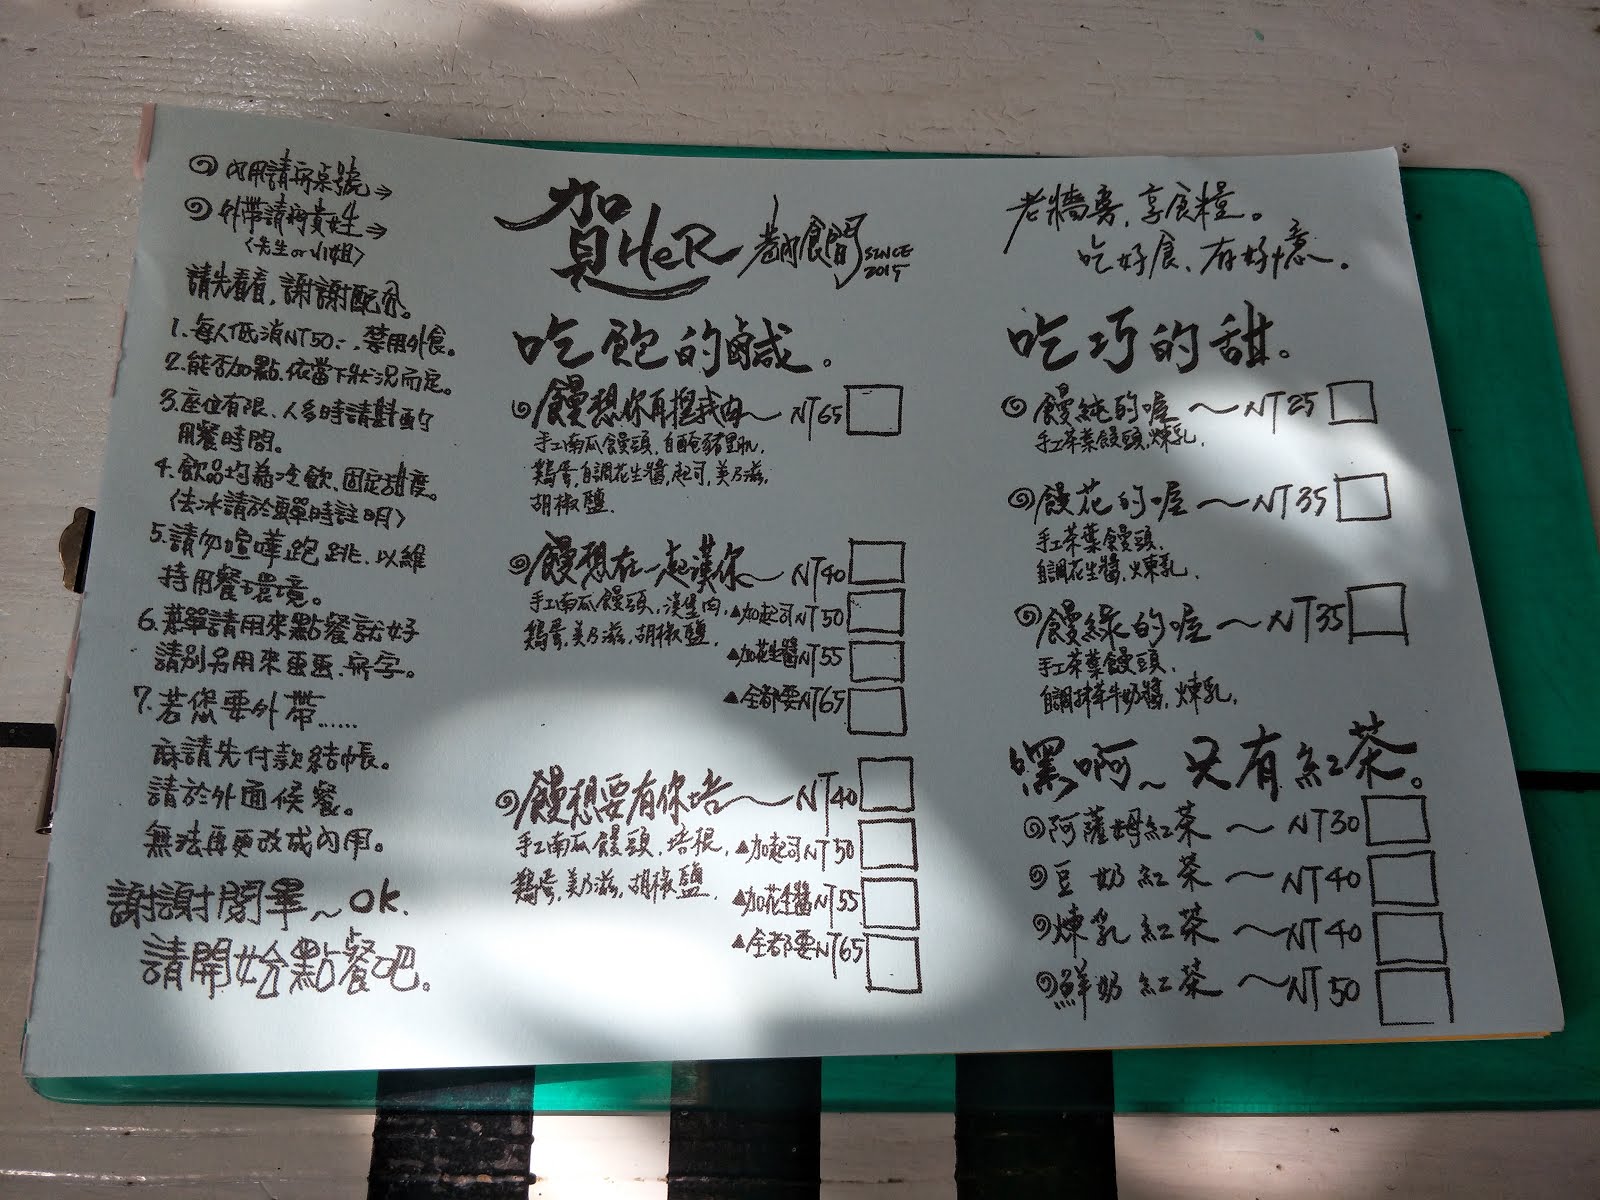 內用請寫桌號→
外帶請寫貴姓→
(先生or小姐)
請先看看,謝謝配合。
1.每人低消NT50元,禁用外食。
2.能否加點,依當下狀況而定。
3.座位有限、人多時請斟酌
用餐時間。
4.飲品均為冷飲、固定甜度。
(去冰請於點單時註明)
5.請勿喧嘩跑跳,以維
持用餐環境。
6.菜單請用來點餐就好
請別另用來畫畫、寫字。
7.若您要外帶......
麻請先付款結帳。
請於外面候餐。
無法再更改成內用。
謝謝閱畢~OK.
請開始點餐吧。
賀HeR 巷內食間 SINCE 2015
吃飽的鹹。
饅想你再摳我肉~NT65
手工南瓜饅頭,自醃豬里肌,
鷄蛋,自調花生醬,起司,美乃滋,
胡椒鹽.
饅想在一起漢你~NT40
手工南瓜饅頭,漢堡肉,▲加起司NT50
鷄蛋,美乃滋,胡椒鹽.
▲加花生醬NT55
▲全都要NT65
饅想要有你培~NT40
手工南瓜饅頭,培根,▲加起司NT50
鷄蛋,美乃滋,胡椒鹽.
▲加花生醬NT55
▲全都要NT65
老牆旁,享食糧。
吃好食、有好憶.
吃巧的甜。
饅純的喔~NT25
手工茶葉饅頭,煉乳.
饅花的喔~NT35
手工茶葉饅頭,
自調花生醬,煉乳.
饅綠的喔~NT35
手工茶葉饅頭,
自調抹茶牛奶醬,煉乳.
嘿啊~只有紅茶。
阿薩姆紅茶~NT30
豆奶紅茶~NT40
煉乳紅茶~NT40
鮮奶紅茶~NT50